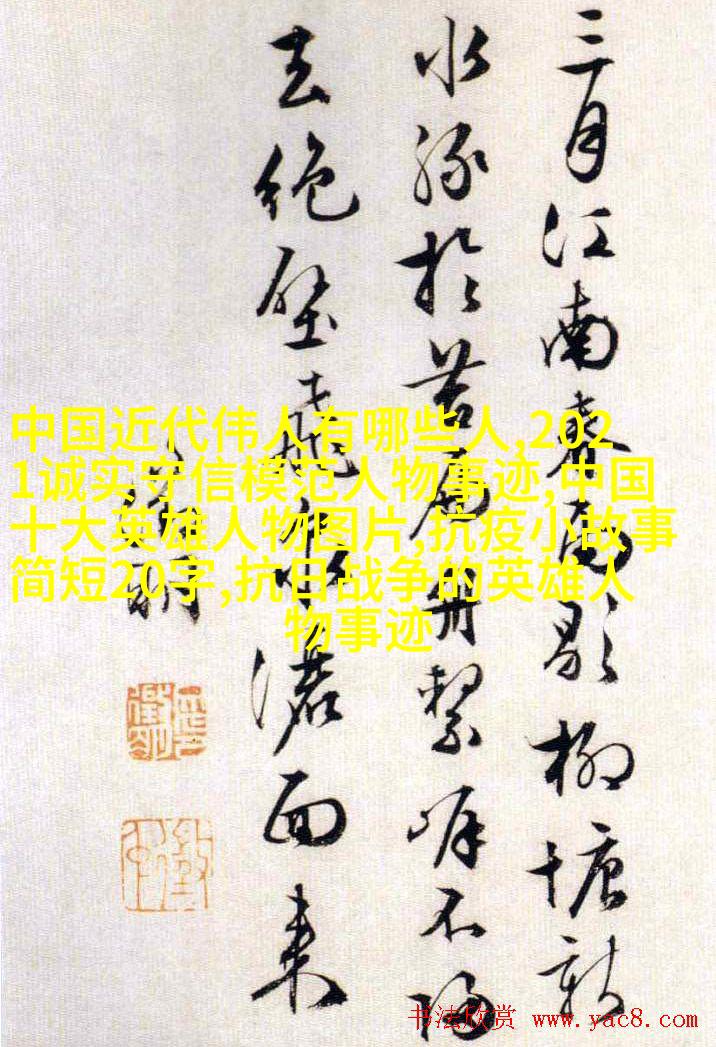 三月江南暮雨歇柳塘新
水綠於苔扁舟繫岸不歸
去絕壁飛面来
中国近代伟人有哪些人,202
1诚实守信模范人物事迹,中国
十大英雄人物图片,抗疫小故事
简短20字,抗日战争的英雄人
物事迹
书法欣赏 www.yac8.com